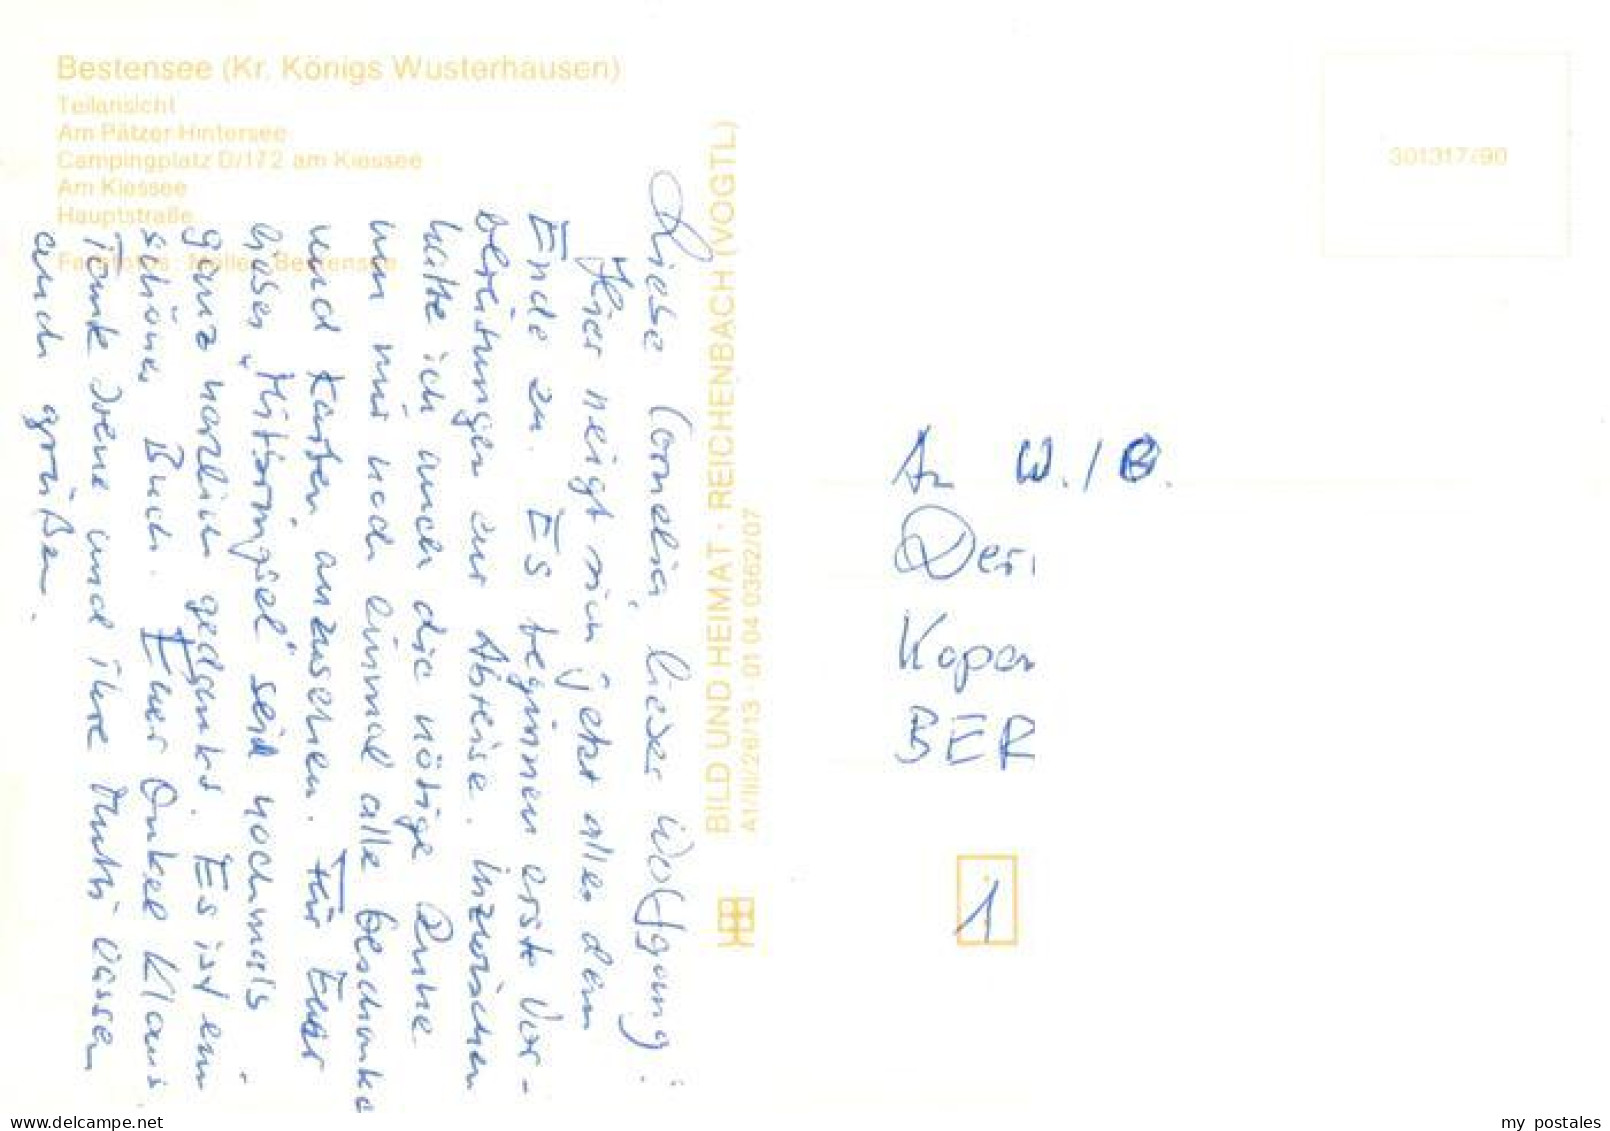 Bestensee (Kr. Königs Wusterhausen)
Teilansicht
Am Pätzer Hintersee
Campingplatz D/172 am Kiessee
Am Kiessee
Hauptstraße
Farbfotos: Müller, Bestensee
Liebe Cornelia, lieber Wolfgang!
Hier neigt sich jetzt alles dem
Ende zu. Es beginnen erste Vor-
bereitungen zur Abreise. Inzwischen
hatte ich auch die nötige Ruhe
um mir noch einmal alle Geschenke
und Karten anzusehen. Für Euer
"Mitbringsel" seid nochmals
ganz herzlich gedankt. Es ist ein
schönes Buch. Euer Onkel Klaus
Tante Irene und ihre Mutti lassen
auch grüßen.
BILD UND HEIMAT · REICHENBACH (VOGTL)
A1/III/26/13 · 01 04 0362/07
301317/90
An W./B.
Der
BER
1
www.delcampe.net
my_postales